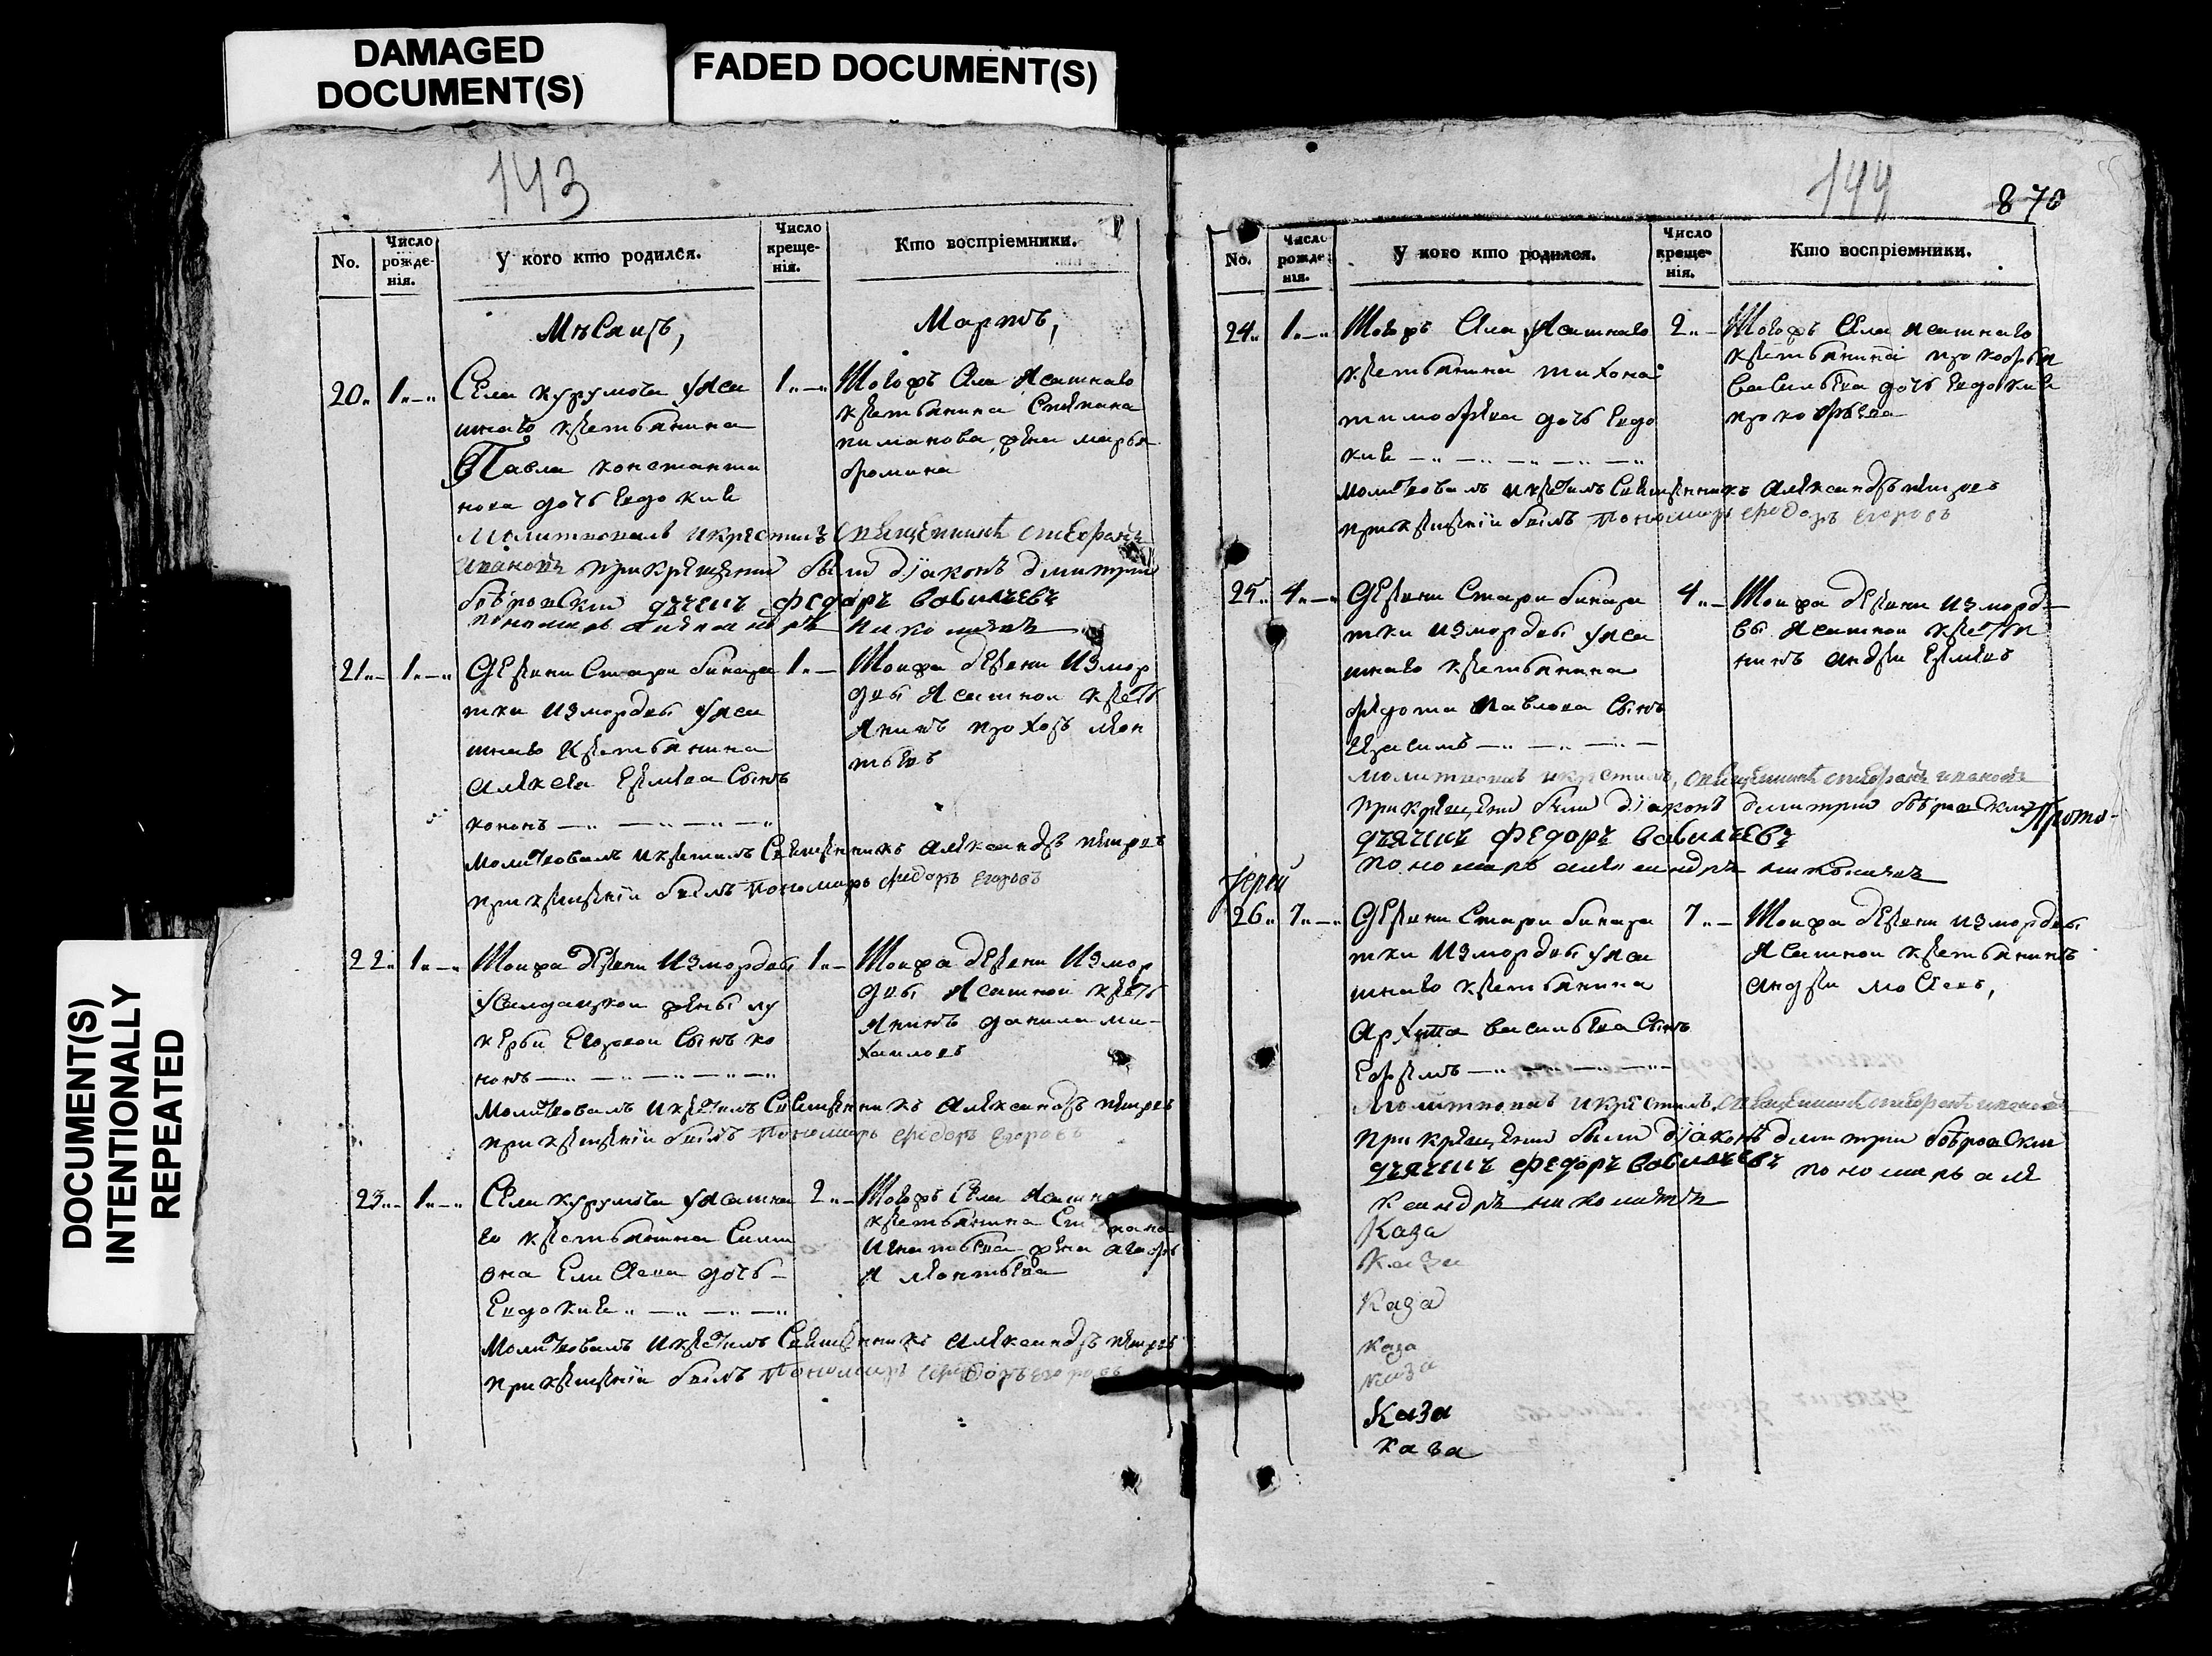 DAMAGED
DOCUMENT(S)
FADED DOCUMENT(S)
DOCUMENT(S)
INTENTIONALLY
REPEATED
143
No.
Число рожде-нія.
У кого кто родился.
Число креще-нія.
Кто воспріемники.
Мѣсяцъ,
Мартъ,
20. 1.
Села курумоча уяса
шнаво
Павла константи
нова дочь Евдокия
1.
Степана
жена марья
фомина
Молитвовалъ и крестилъ священникъ стефанъ
ивановъ при крещении были діаконъ димитрий
бобровский дьячекъ федоръ вавилычевъ
пономарь александръ николаевъ
21. 1.
Деревни Стари бинара
тки из мордвы уяса
шнаво крестьянина
алексея Ефимова сынъ
кононъ
1.
Тоижа деревни Из мор
двы ясашнои кресть
янинъ прохоръ леон
тьевъ
Молитвовалъ и крестилъ Священникъ александръ петровъ
при крещеніи былъ Пономарь федоръ Егоровъ
22. 1.
Тоижа деревни Из мордвы
Усолдацкои жены лу
керьи Егоровои сынъ ко
нонъ
1.
Тоижа деревни Из мор
двы ясашнои кресть
янинъ данила ми-
хаиловъ
Молитвовалъ и крестилъ Священникъ александръ петровъ
при крещеніи былъ Пономарь федоръ Егоровъ
23. 1.
Села курумоча уясашна
во крестьянина Сими
она Елисеева дочь
Евдокия
2.
Тогожъ Села
крестьянина
Игнатьева жена агафь
я леонтьева
Молитвовалъ и крестилъ Священникъ александръ петровъ
при крещеніи былъ Пономарь федоръ егоровъ
144
870
No.
Число рожде-нія.
У кого кто родился.
Число креще-нія.
Кто воспріемники.
24. 1.
Тогожъ Села уясашнаво
крестьянина тихона
тимофеева дочь Евдо
кия
2.
Тогожъ Села ясашнаво
крестьянина прокофья
васильева дочь Евдокия
прокофьева
Молитвовалъ и крестилъ Священникъ александръ петровъ
при крещеніи былъ Пономарь федоръ Егоровъ
25. 4.
Деревни Стари бинара
тки из мордвы уяса
шнаво крестьянина
федота павлова сынъ
герасимъ
4.
Тоижа деревни из морд-
вы ясашнои крестья
нинъ андреи Ефимовъ
молитвовалъ и крестилъ, священникъ стефанъ ивановъ
при крещении были діаконъ димитрий бобровский
Прото-
дьячекъ федоръ вавилычевъ
пономарь александръ николаевъ
Іерей
26. 7.
Деревни Стари бинара
тки Из мордвы уяса
шнаво крестьянина
Архипа васильева сынъ
Ефремъ
7.
Тоижа деревни из мордвы
ясашнои крестьянинъ
андреи мосеевъ,
Молитвовалъ и крестилъ священникъ стефанъ ивановъ
при крещении были діаконъ димитрий бобровский
дьячекъ федоръ вавилычевъ пономарь але
ксандръ николаевъ
Каза
Каза
Каза
каза
каза
Каза
каза